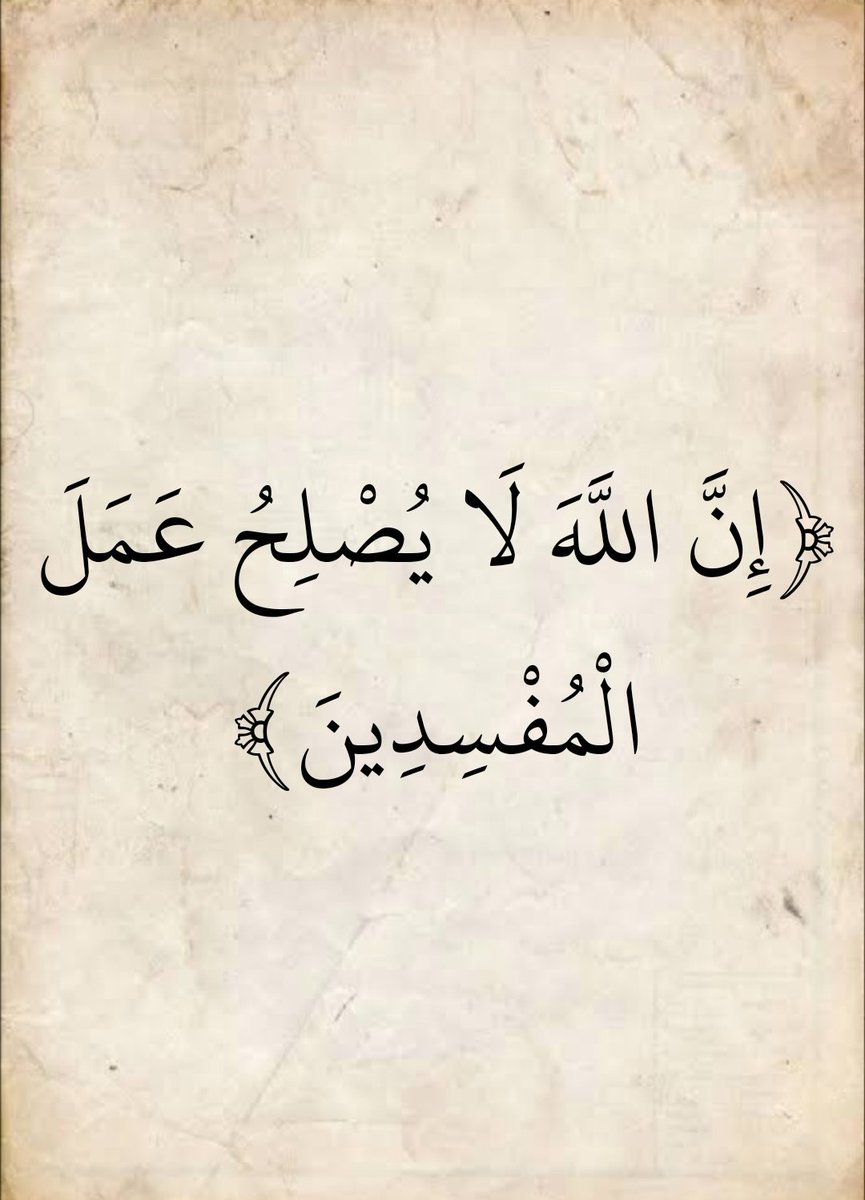 ﴿إِنَّ اللَّهَ لَا يُصْلِحُ عَمَلَ
الْمُفْسِدِينَ﴾